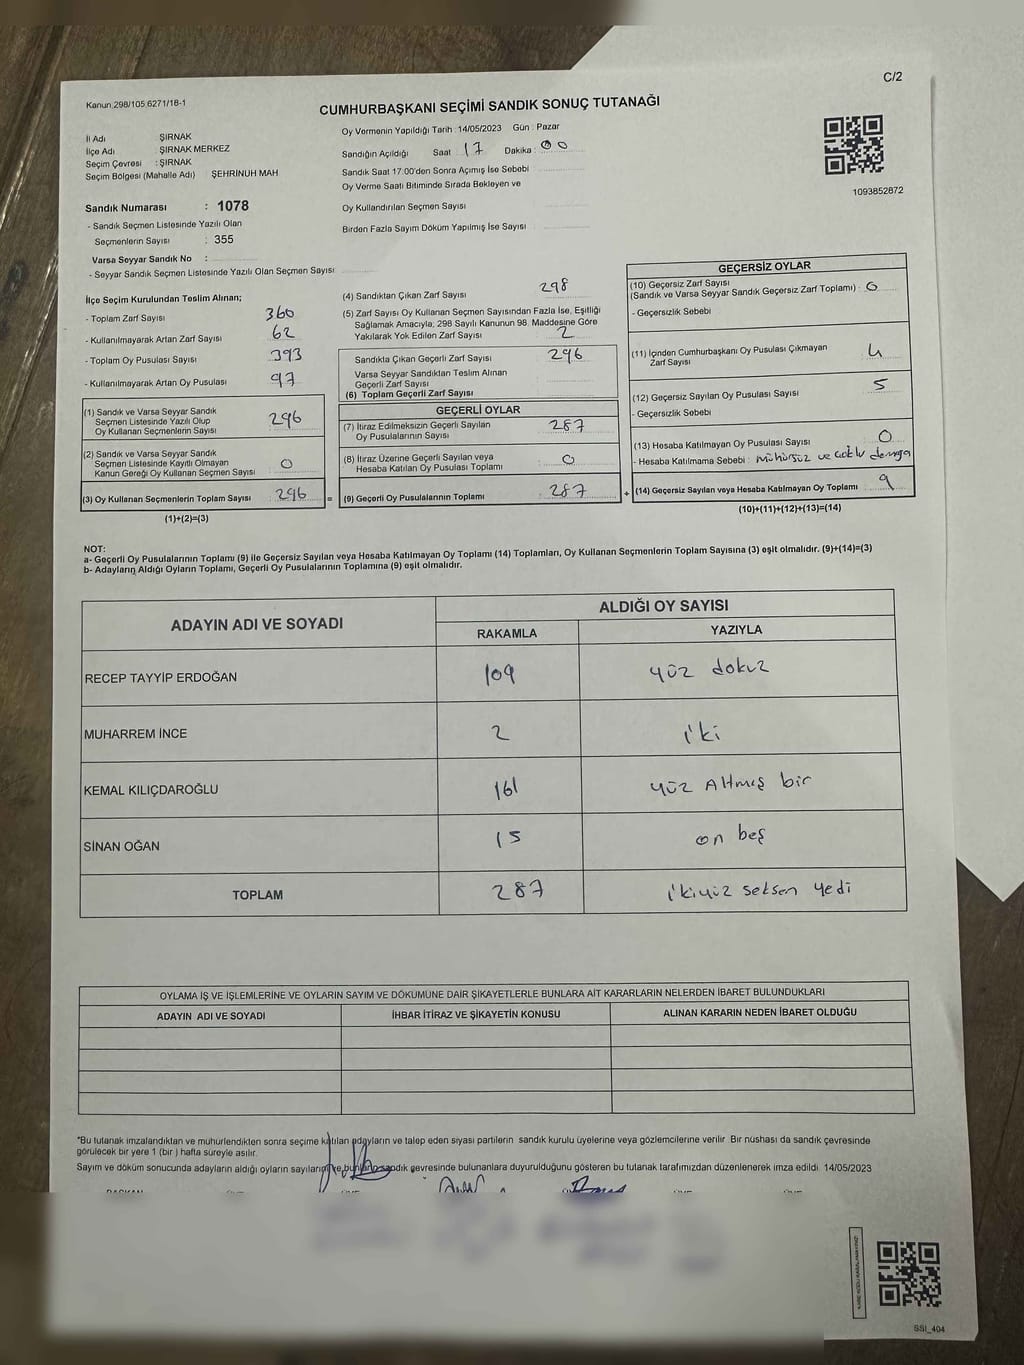 C/2
Kanun 298/105 6271/18-1
CUMHURBAŞKANI SEÇİMİ SANDIK SONUÇ TUTANAĞI
İl Adı ŞIRNAK
İlçe Adı ŞIRNAK MERKEZ
Seçim Çevresi : ŞIRNAK
Seçim Bölgesi (Mahalle Adı) ŞEHRİNUH MAH
Oy Vermenin Yapıldığı Tarih : 14/05/2023 Gün : Pazar
Sandığın Açıldığı Saat 17 Dakika : 00
Sandık Saat 17:00'den Sonra Açımış İse Sebebi
Oy Verme Saati Bitiminde Sırada Bekleyen ve
Oy Kullandırılan Seçmen Sayısı
Birden Fazla Sayım Döküm Yapılmış İse Sayısı
1093852872
Sandık Numarası : 1078
- Sandık Seçmen Listesinde Yazılı Olan
Seçmenlerin Sayısı : 355
Varsa Seyyar Sandık No :
- Seyyar Sandık Seçmen Listesinde Yazılı Olan Seçmen Sayısı
İlçe Seçim Kurulundan Teslim Alınan;
- Toplam Zarf Sayısı 360
- Kullanılmayarak Artan Zarf Sayısı 62
- Toplam Oy Pusulası Sayısı 393
- Kullanılmayarak Artan Oy Pusulası 97
(1) Sandık ve Varsa Seyyar Sandık
Seçmen Listesinde Yazılı Olup
Oy Kullanan Seçmenlerin Sayısı 296
(2) Sandık ve Varsa Seyyar Sandık
Seçmen Listesinde Kayıtlı Olmayan
Kanun Gereği Oy Kullanan Seçmen Sayısı 0
(3) Oy Kullanan Seçmenlerin Toplam Sayısı 296 =
(1)+(2)=(3)
(4) Sandıktan Çıkan Zarf Sayısı 298
(5) Zarf Sayısı Oy Kullanan Seçmen Sayısından Fazla İse, Eşitliği
Sağlamak Amacıyla, 298 Sayılı Kanunun 98. Maddesine Göre
Yakılarak Yok Edilen Zarf Sayısı 2
Sandıkta Çıkan Geçerli Zarf Sayısı 296
Varsa Seyyar Sandıktan Teslim Alınan
Geçerli Zarf Sayısı
(6) Toplam Geçerli Zarf Sayısı
GEÇERLİ OYLAR
(7) İtiraz Edilmeksizin Geçerli Sayılan
Oy Pusulalarının Sayısı 287
(8) İtiraz Üzerine Geçerli Sayılan veya
Hesaba Katılan Oy Pusulası Toplamı 0
(9) Geçerli Oy Pusulalarının Toplamı 287 +
GEÇERSİZ OYLAR
(10) Geçersiz Zarf Sayısı
(Sandık ve Varsa Seyyar Sandık Geçersiz Zarf Toplamı) : 0
- Geçersizlik Sebebi
(11) İçinden Cumhurbaşkanı Oy Pusulası Çıkmayan
Zarf Sayısı 4
(12) Geçersiz Sayılan Oy Pusulası Sayısı 5
- Geçersizlik Sebebi
(13) Hesaba Katılmayan Oy Pusulası Sayısı 0
- Hesaba Katılmama Sebebi : mühürsüz ve çoklu damga
(14) Geçersiz Sayılan veya Hesaba Katılmayan Oy Toplamı 9
(10)+(11)+(12)+(13)=(14)
NOT:
a- Geçerli Oy Pusulalarının Toplamı (9) ile Geçersiz Sayılan veya Hesaba Katılmayan Oy Toplamı (14) Toplamları, Oy Kullanan Seçmenlerin Toplam Sayısına (3) eşit olmalıdır. (9)+(14)=(3)
b- Adayların Aldığı Oyların Toplamı, Geçerli Oy Pusulalarının Toplamına (9) eşit olmalıdır.
ADAYIN ADI VE SOYADI ALDIĞI OY SAYISI
RAKAMLA YAZIYLA
RECEP TAYYİP ERDOĞAN 109 yüz dokuz
MUHARREM İNCE 2 iki
KEMAL KILIÇDAROĞLU 161 yüz Altmış bir
SİNAN OĞAN 15 on beş
TOPLAM 287 ikiyüz seksen yedi
OYLAMA İŞ VE İŞLEMLERİNE VE OYLARIN SAYIM VE DÖKÜMÜNE DAİR ŞİKAYETLERLE BUNLARA AİT KARARLARIN NELERDEN İBARET BULUNDUKLARI
ADAYIN ADI VE SOYADI İHBAR İTİRAZ VE ŞİKAYETİN KONUSU ALINAN KARARIN NEDEN İBARET OLDUĞU
*Bu tutanak imzalandıktan ve mühürlendikten sonra seçime katılan adayların ve talep eden siyasi partilerin sandık kurulu üyelerine veya gözlemcilerine verilir. Bir nüshası da sandık çevresinde
görülecek bir yere 1 (bir) hafta süreyle asılır.
Sayım ve döküm sonucunda adayların aldığı oyların sayıları ve bunların sandık çevresinde bulunanlara duyurulduğunu gösteren bu tutanak tarafımızdan düzenlenerek imza edildi. 14/05/2023
SSI_404